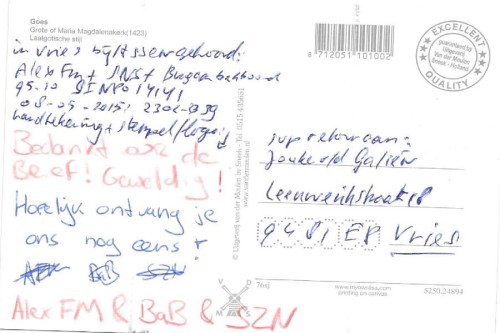 Goes
Grote of Maria Magdalenakerk(1423)
Laatgotische stijl
in Vries bijtssemgehoord:
Alex Fm +
95.10 SINPO 14141
08-05-2015; 2302-2339
handtekening + stempel/logo;
Bedankt voor de
Brief! Geweldig!
Hopelijk ontvang je
ons nog eens!
BaB SZN
Alex FM & BaB & SZN
8 712051 101002
EXCELLENT
Guaranteed by
Uitgeverij
Van der Meulen
Sneek - Holland
QUALITY
© Uitgeverij Van der Meulen bv Sneek - Tel. 0515-435601
www.vandermeulen.nl
svp retour aan:
Jouke vd Galiën
9481 EP Vries
VDMS
www.mycards.com
printing on canvas
5250.24694